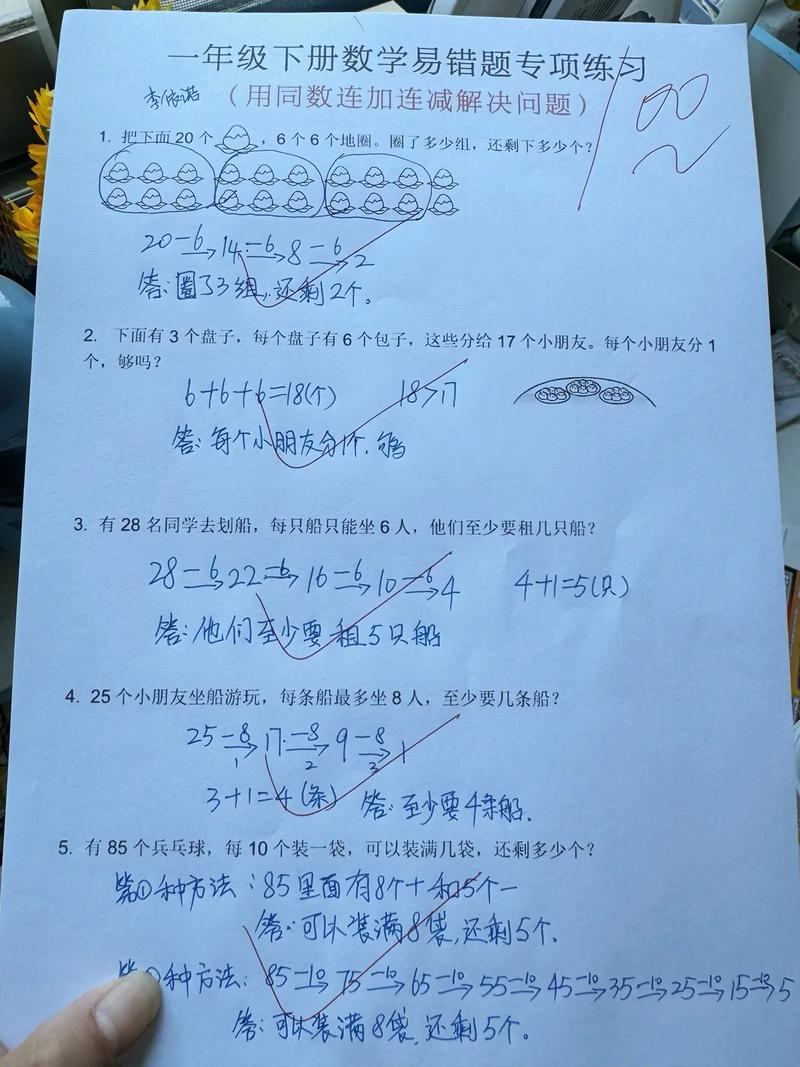 一年级下册数学易错题专项练习
李依诺
（用同数连加连减解决问题）
100
1. 把下面 20 个 ，6 个 6 个地圈。圈了多少组，还剩下多少个？
20 -6→ 14 -6→ 8 -6→ 2
答：圈了3组，还剩2个。
2. 下面有 3 个盘子，每个盘子有 6 个包子，这些分给 17 个小朋友。每个小朋友分 1
个，够吗？
6+6+6=18(个) 18>17
答：每个小朋友分1个，够
3. 有 28 名同学去划船，每只船只能坐 6 人，他们至少要租几只船？
28 -6→ 22 -6→ 16 -6→ 10 -6→ 4 4+1=5(只)
答：他们至少要租5只船
4. 25 个小朋友坐船游玩，每条船最多坐 8 人，至少要几条船？
25 -8→ 17 -8→ 9 -8→ 1
1 2 3
3+1=4(条) 答：至少要4条船.
5. 有 85 个乒乓球，每 10 个装一袋，可以装满几袋，还剩多少个？
第①种方法：85里面有8个十和5个一
答：可以装满8袋，还剩5个.
种方法：85 -10→ 75 -10→ 65 -10→ 55 -10→ 45 -10→ 35 -10→ 25 -10→ 15 -10→ 5
答：可以装满8袋，还剩5个。